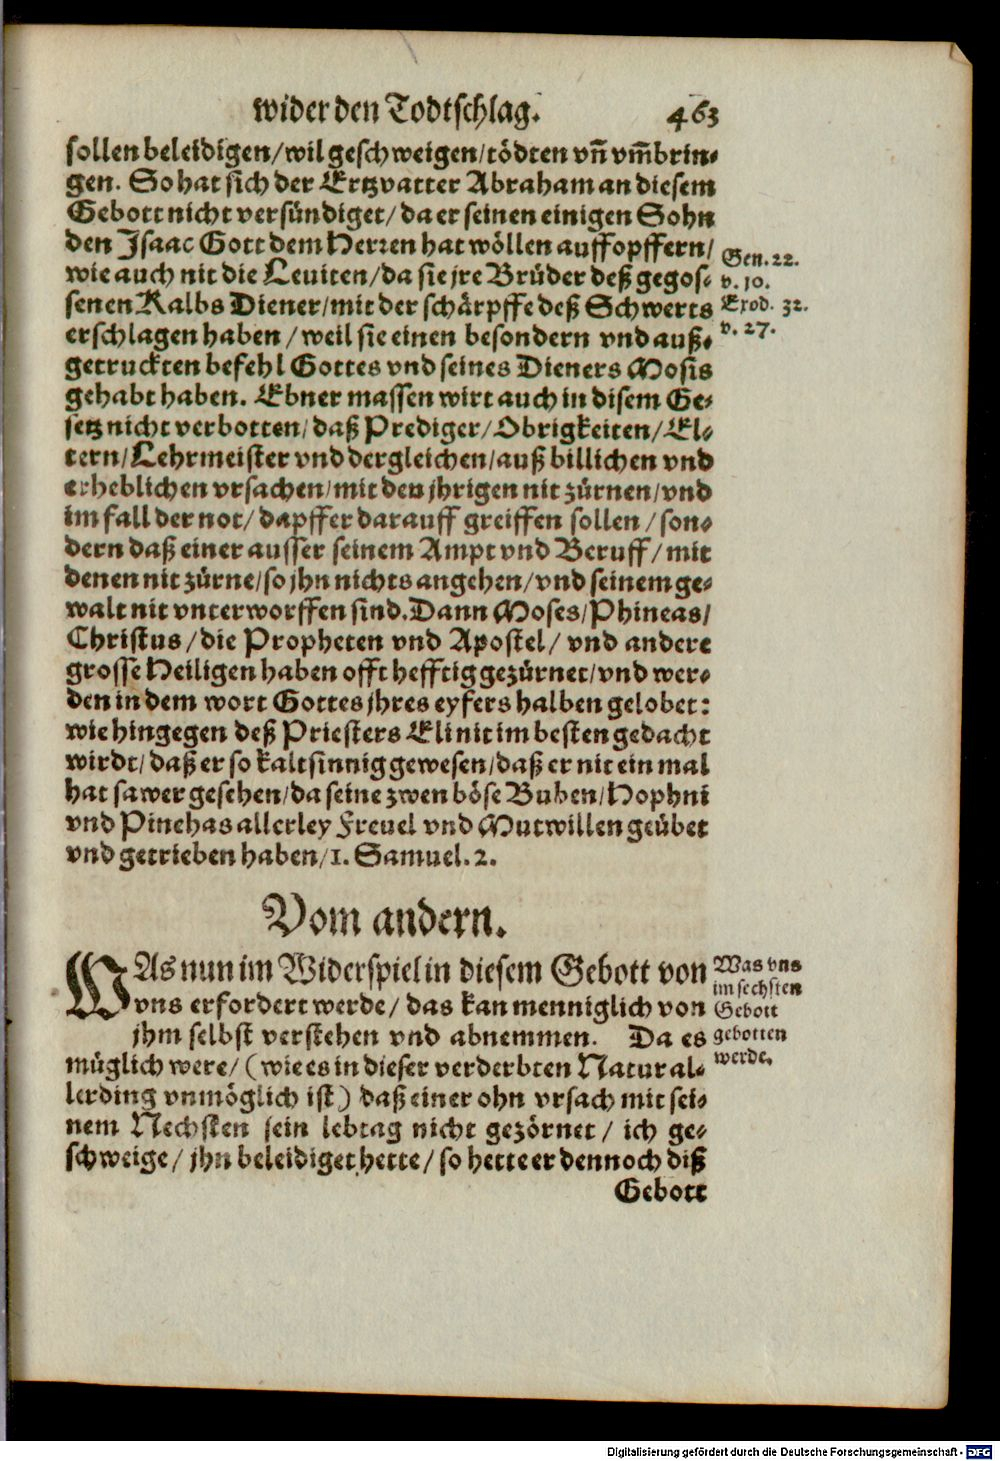 wider den Todtschlag. 463
sollen beleidigen/wil geschweigen/tödten vn̄ vm̄brin-
gen. So hat sich der Ertzvatter Abraham an diesem
Gebott nicht versündiget/da er seinen einigen Sohn
den Isaac Gott dem Herren hat wöllen auffopffern/
wie auch nit die Leviten/da sie jre Brüder deß gegos-
senen Kalbs Diener/mit der schärpffe deß Schwerts
erschlagen haben/weil sie einen besondern vnd auß-
getruckten befehl Gottes vnd seines Dieners Mosis
gehabt haben. Ebner massen wirt auch in disem Ge-
setz nicht verbotten/daß Prediger/Obrigkeiten/El-
tern/Lehrmeister vnd dergleichen/auß billichen vnd
erheblichen vrsachen/mit den jhrigen nit zürnen/vnd
im fall der not/dapffer darauff greiffen sollen/son-
dern daß einer ausser seinem Ampt vnd Beruff/mit
denen nit zürne/so jhn nichts angehen/vnd seinem ge-
walt nit vnterworffen sind. Dann Moses/Phineas/
Christus/die Propheten vnd Apostel/vnd andere
grosse Heiligen haben offt hefftig gezürnet/vnd wer-
den in dem wort Gottes jhres eyfers halben gelobet:
wie hingegen deß Priesters Eli nit im besten gedacht
wirdt/daß er so kaltsinnig gewesen/daß er nit ein mal
hat sawer gesehen/da seine zwen böse Buben/Hophni
vnd Pinehas allerley Freuel vnd Mutwillen geübet
vnd getrieben haben/1. Samuel. 2.
Gen. 22.
v. 10.
Exod. 32.
v. 27.
Vom andern.
WAs nun im Widerspiel in diesem Gebott von
vns erfordert werde/das kan menniglich von
jhm selbst verstehen vnd abnemmen. Da es
müglich were/(wie es in dieser verderbten Natur al-
lerding vnmöglich ist) daß einer ohn vrsach mit sei-
nem Nechsten sein lebtag nicht gezörnet/ich ge-
schweige/jhn beleidiget hette/so hette er dennoch diß
Gebott
Was vns
im sechsten
Gebott
gebotten
werde.
Digitalisierung gefördert durch die Deutsche Forschungsgemeinschaft - DFG